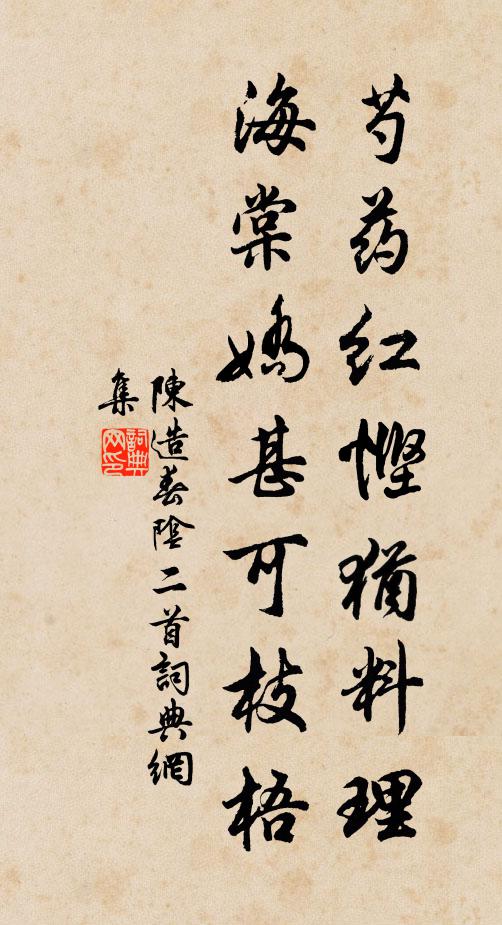 芍药红悭犹料理
海棠娇甚可枝梧
陳造春陰二首詞典網
集
詞典
网印